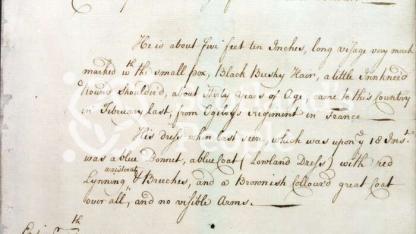 He is about five feet ten Inches, long visage very much
marked wth the small pox, Black Bushy Hair, a little Innkneed
round Shoulder'd, about Thirty Years of Age, came to this Country
in February last, from Ogilvy's Regiment in France
His dress when last seen, which was upon ye 18 Inst.
was a blue Bonnet, a blue Coat (Lowland Dress) with red
waistcoat
Lynning & Breeches, and a Brownish Collour'd great Coat
over all, and no visible Arms.